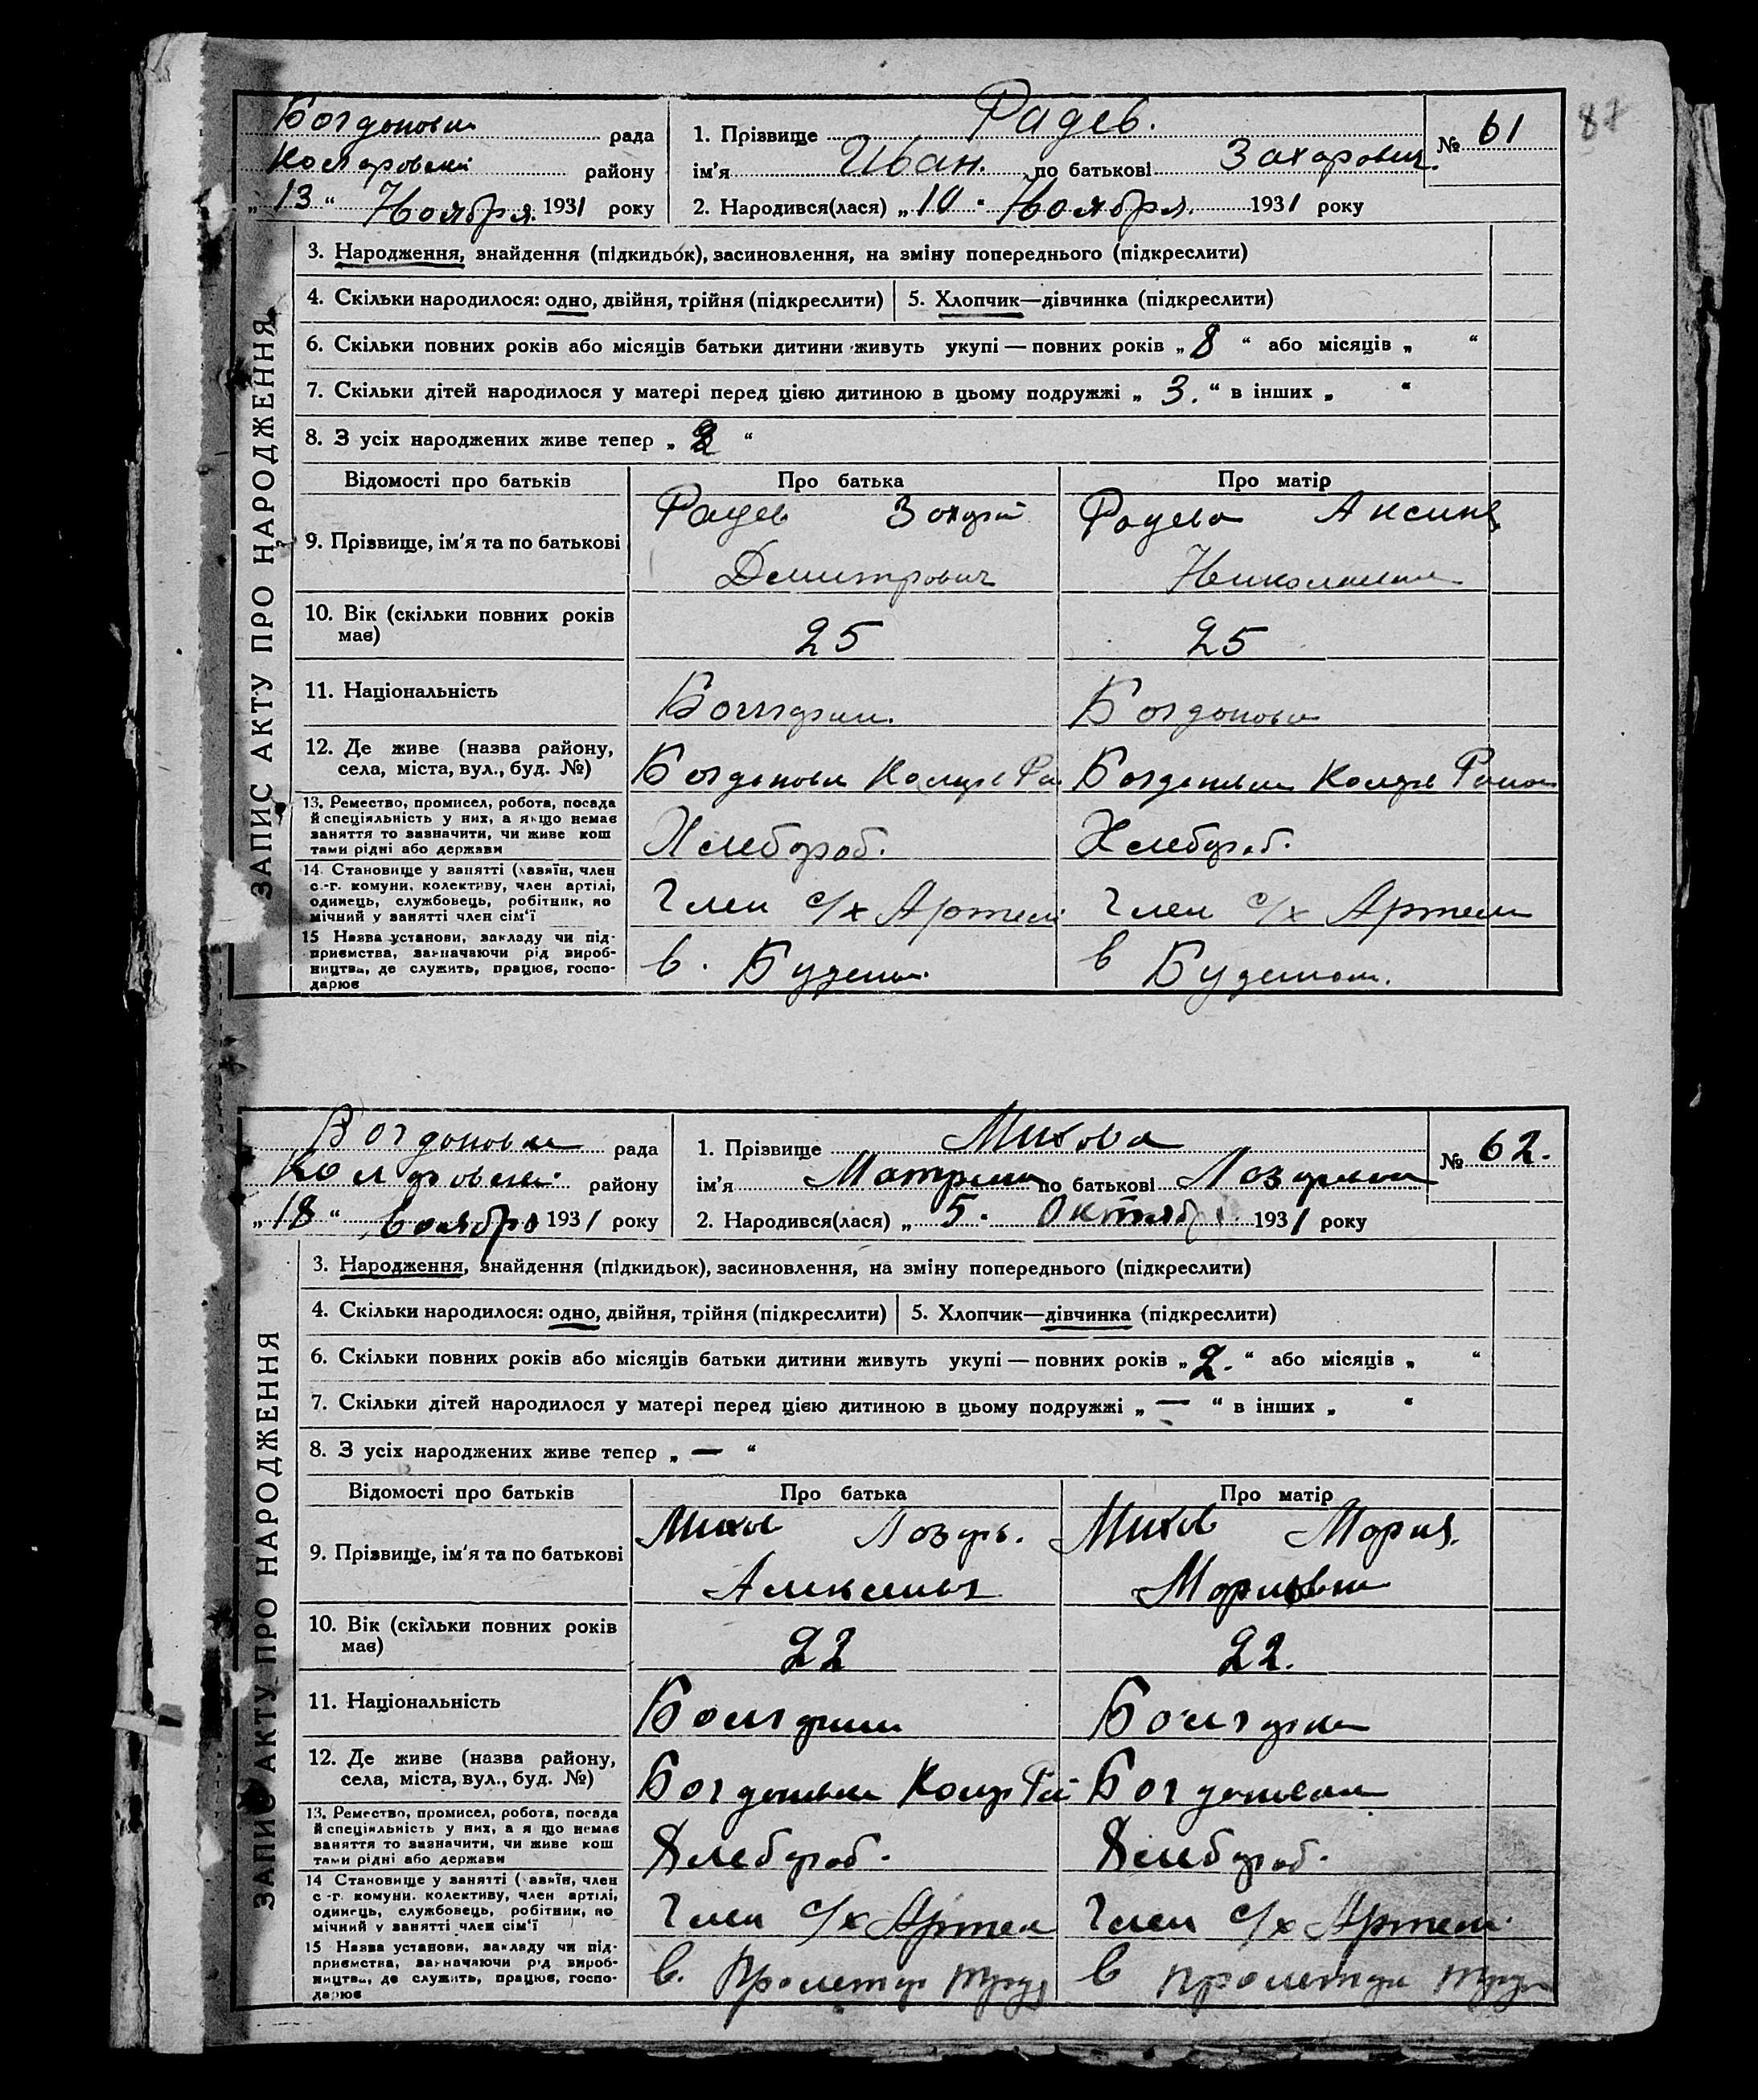 87
Богдоновки рада
Коларовский району
„13“ Ноября 1931 року
1. Прізвище Радев.
ім'я Иван. по батькові Захарович.
2. Народився(лася) „10“ Ноября 1931 року
№ 61
ЗАПИС АКТУ ПРО НАРОДЖЕННЯ
3. Народження, знайдення (підкидьок), засиновлення, на зміну попереднього (підкреслити)
4. Скільки народилося: одно, двійня, трійня (підкреслити) 5. Хлопчик—дівчинка (підкреслити)
6. Скільки повних років або місяців батьки дитини живуть укупі — повних років „8“ або місяців „ “
7. Скільки дітей народилося у матері перед цією дитиною в цьому подружжі „3.“ в інших „ “
8. З усіх народжених живе тепер „2“
Відомості про батьків Про батька Про матір
9. Прізвище, ім'я та по батькові
Радев Захарий Радева Аксиня
Дмитрович Николаевна
10. Вік (скільки повних років має) 25 25
11. Національність Болгарин. Богдоновка
12. Де живе (назва району, села, міста, вул., буд. №)
Богдоновка Колар Ра Богдоновка Колар Район
13. Ремество, промисел, робота, посада
й спеціяльність у них, а якщо немає
заняття то зазначити, чи живе кош
тами рідні або держави
Хлебороб. Хлебороб.
14. Становище у занятті (хазяїн, член
с.-г. комуни, колективу, член артілі,
одинець, службовець, робітник, по
мічний у занятті член сім'ї
Член с/х Артели Член с/х Артели
15 Назва установи, закладу чи під-
приємства, зазначаючи рід вироб-
ництва, де служить, працює, госпо-
дарює
в. Буденом. в Буденом.
Богдоновки рада
Коларовский району
„18“ ноября 1931 року
1. Прізвище Михова
ім'я Матрена по батькові Лозаревна
2. Народився(лася) „5“ Октября 1931 року
№ 62.
ЗАПИС АКТУ ПРО НАРОДЖЕННЯ
3. Народження, знайдення (підкидьок), засиновлення, на зміну попереднього (підкреслити)
4. Скільки народилося: одно, двійня, трійня (підкреслити) 5. Хлопчик—дівчинка (підкреслити)
6. Скільки повних років або місяців батьки дитини живуть укупі — повних років „2.“ або місяців „ “
7. Скільки дітей народилося у матері перед цією дитиною в цьому подружжі „—“ в інших „ “
8. З усіх народжених живе тепер „—“
Відомості про батьків Про батька Про матір
9. Прізвище, ім'я та по батькові
Михов Лозарь. Михов Мория.
10. Вік (скільки повних років має) 22 22.
11. Національність Болгарин Болгарка
12. Де живе (назва району, села, міста, вул., буд. №)
Богдоновка Колар Рай Богдоновка
13. Ремество, промисел, робота, посада
й спеціяльність у них, а я що немає
заняття то зазначити, чи живе кош
тами рідні або держави
Хлебороб. Хлебороб.
14 Становище у занятті (хазяїн, член
с-г. комуни, колективу, член артілі,
одинець, службовець, робітник, по
мічний у занятті член сім'ї
Член с/х Артел Член с/х Артели.
15 Назва установи, закладу чи під-
приємства, зазначаючи рід вироб-
ництва, де служить, працює, госпо-
дарює
в. Пролетар труд в пролетар труд